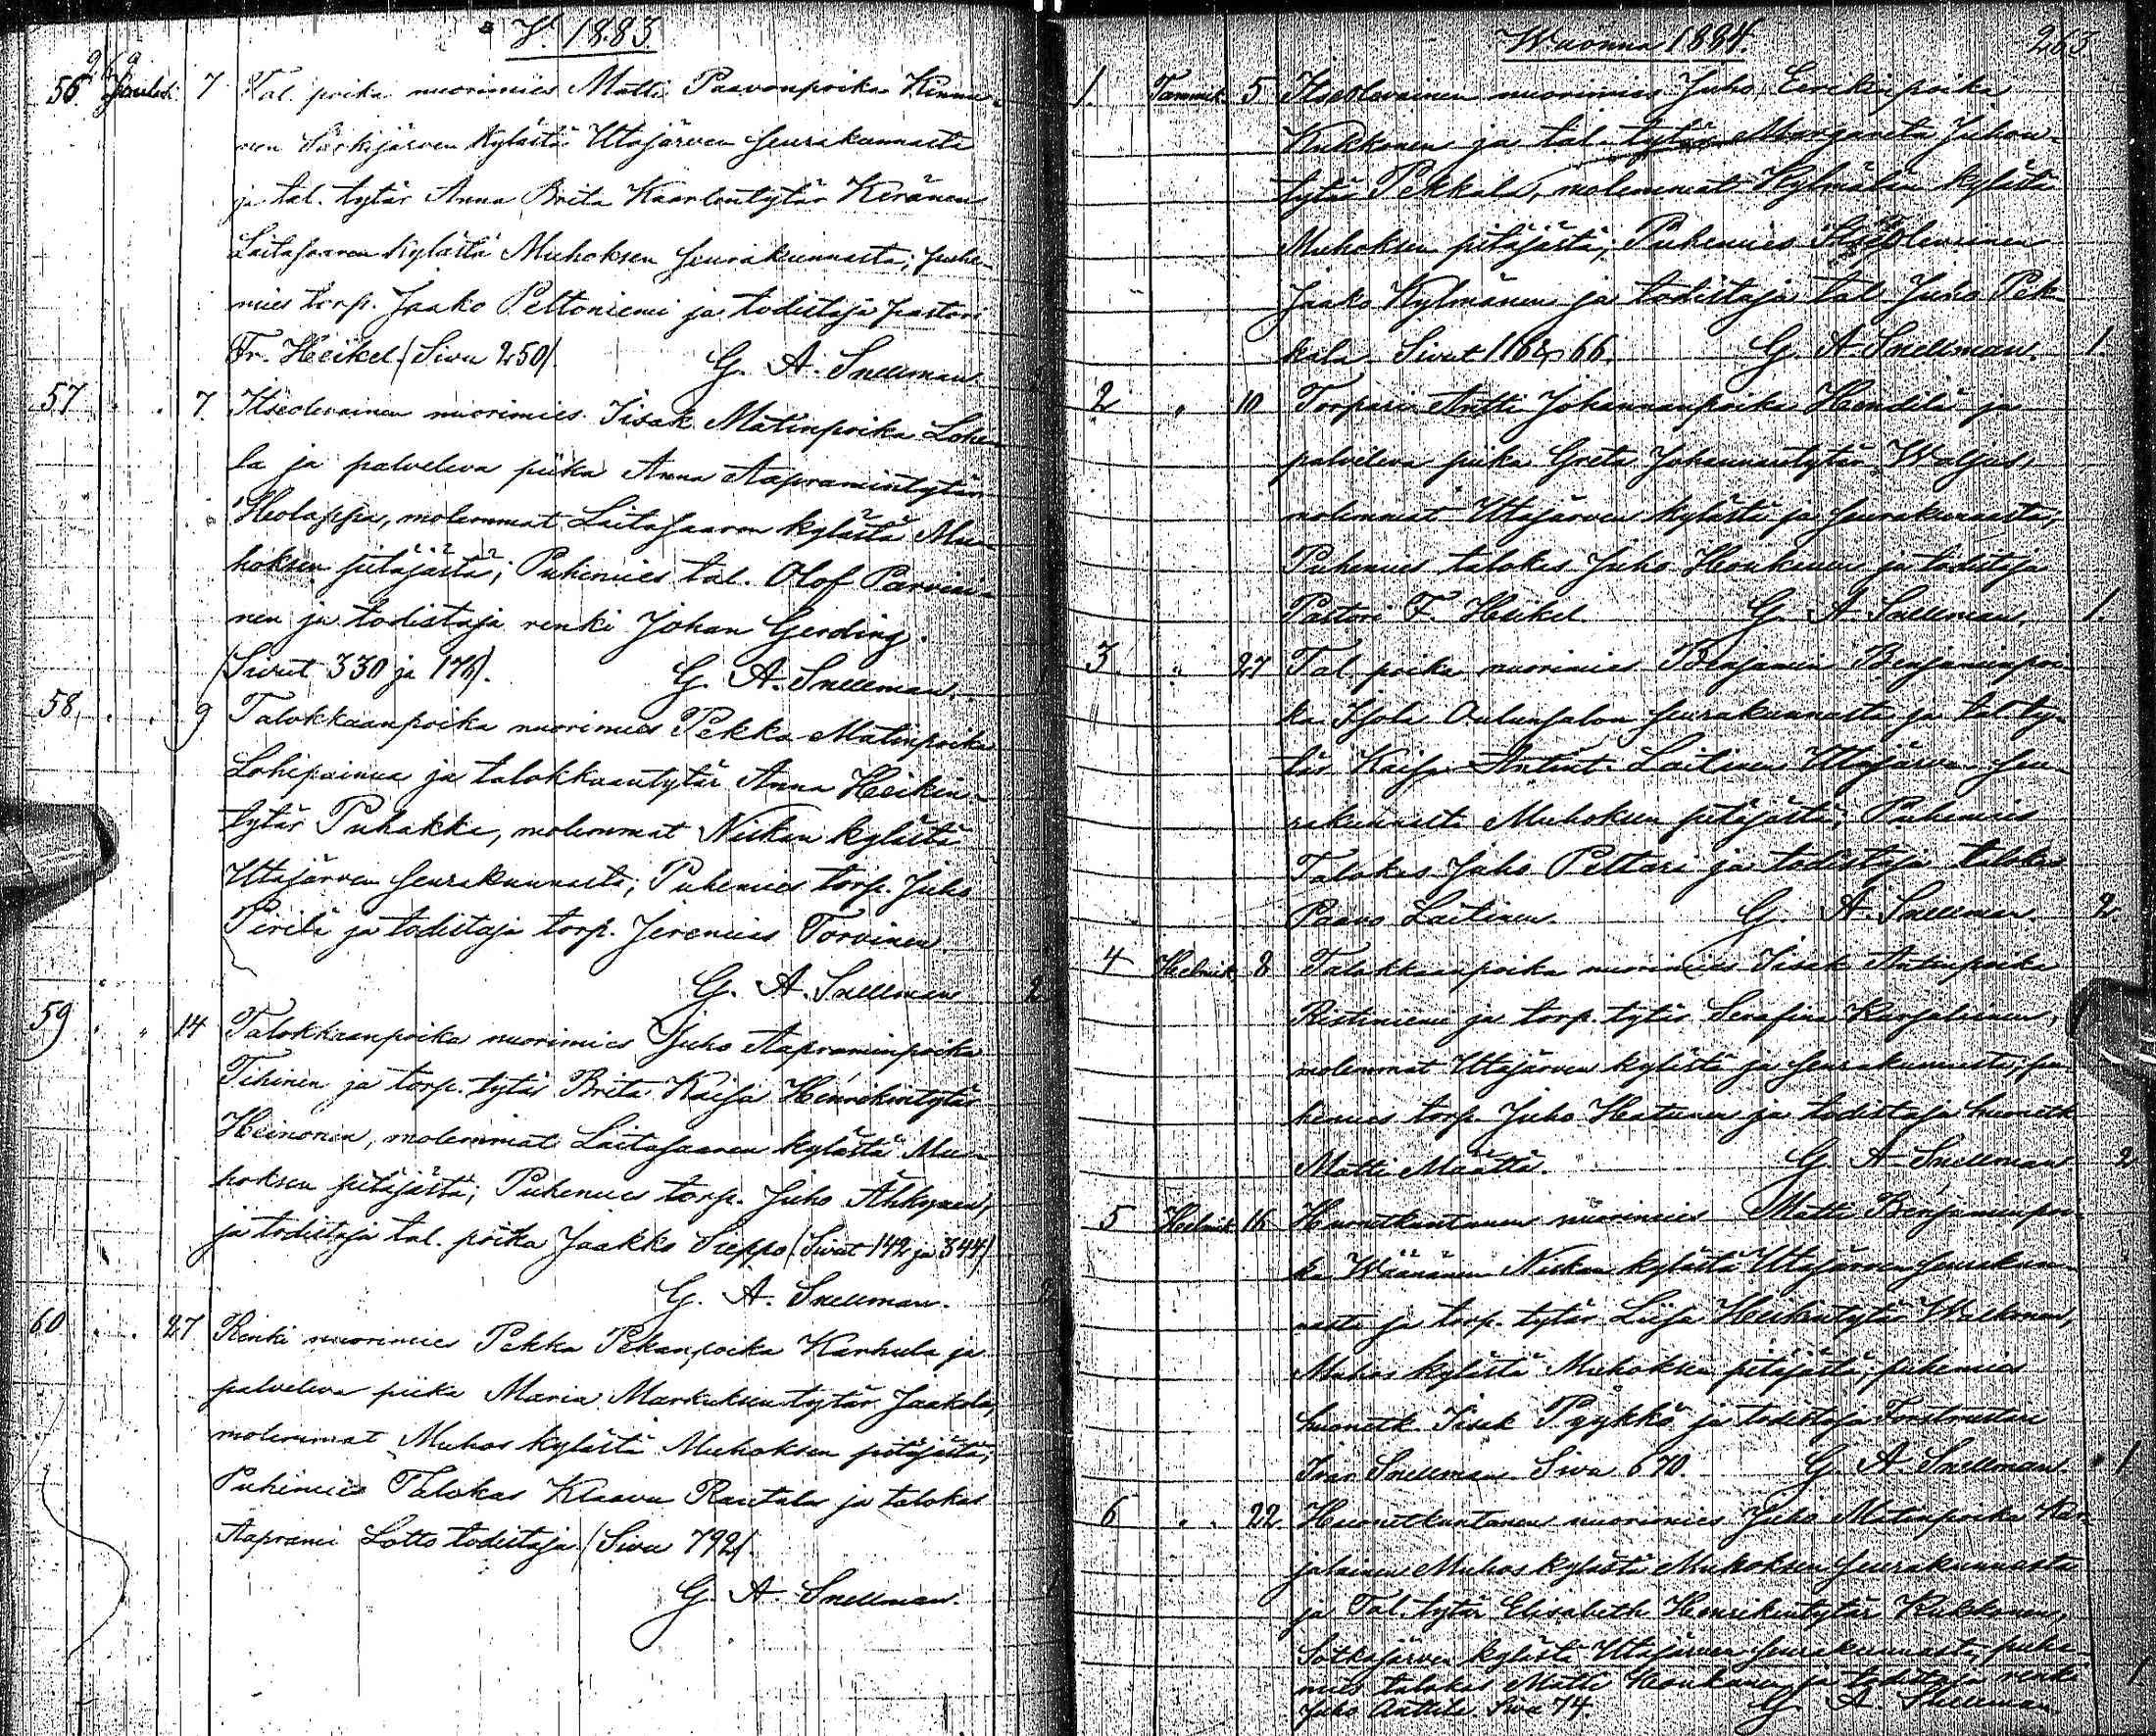 V. 1883.
262
56 Jouluk. 7 Tal. poika nuorimies Matti Paavonpoika Kinnu-
nen Särkijärven kylästä Utajärven seurakunnasta
ja tal. tytär Anna Brita Kaarlentytär Keränen
Laitasaaren kylästä Muhoksen seurakunnasta; puhe-
mies torp. Jaako Peltoniemi ja todistaja pastori
Fr. Heikel. (Sivu 250).
G. A. Snellman.
57 " " 7. Itseolevainen nuorimies Iisak Matinpoika Lohe-
la ja palveleva piika Anna Aapramintytär
Holappa, molemmat Laitasaaren kylästä Mu-
hoksen pitäjästä; Puhemies tal. Olof Parviai-
nen ja todistaja renki Johan Gerding.
(Sivut 330 ja 176).
G. A. Snellman.
58 " " 9 Talokkaanpoika nuorimies Pekka Matinpoika
Lohipainua ja talokkaantytär Anna Heikin-
tytär Puhakka, molemmat Niskan kylästä
Utajärven seurakunnasta; Puhemies torp. Juho
Pirilä ja todistaja torp. Jeremias Torvinen.
G. A. Snellman 2
59 " " 14 Talokkaanpoika nuorimies Juho Aapraminpoika
Tihinen ja torp. tytär Brita Kaisa Henrikintytär
Heinonen, molemmat Laitasaaren kylästä Mu-
hoksen pitäjästä; Puhemies torp. Juho Ähkynen,
ja todistaja tal. poika Jaakko Sieppo (Sivut 142 ja 344)
G. A. Snellman. 2
60 " " 27 Renki nuorimies Pekka Pekanpoika Karhula ja
palveleva piika Maria Markuksentytär Jaakola,
molemmat Muhos kylästä Muhoksen pitäjästä;
Puhemies Talokas Klaavu Rautala ja talokas
Aaprami Lotto todistaja. (Sivu 792).
G. A. Snellman.
Wuonna 1884. 263
1. Tammik. 5 Itseolevainen nuorimies Juho Eerikinpoika
Kukkonen ja tal. tytär Margareta Juhon-
tytär Pekkala, molemmat Kylmälän kylästä
Muhoksen pitäjästä; Puhemies Itseolevainen
Jaako Kylmänen ja todistaja tal. Juho Pek-
kala. Sivut 1162, 66. G. A. Snellman. 1.
2 " 10 Torpari Antti Johannanpoika Hendilä ja
palveleva piika Greta Johannantytär Waljus,
molemmat Utajärven kylästä ja seurakunnasta,
Puhemies talokas Juho Honkanen ja todistaja
Pastori F. Heikel. G. A. Snellman. 1.
3 " 27 Tal. poika nuorimies Benjamin Benjaminpoi-
ka Isola Oulunsalon seurakunnasta ja tal. ty-
tär Kaisa Antint. Laitinen Utajärven seu-
rakunnasta Muhoksen pitäjästä; Puhemies
Talokas Juho Peltari ja todistaja talokas
Paavo Laitinen. G. A. Snellman. 2
4 Helmik. 8 Talokkaanpoika nuorimies Iisak Antinpoika
Ristiniemi ja torp. tytär Serafina Karjalainen,
molemmat Utajärven kylästä ja seurakunnasta; pu-
hemies torp. Juho Hietanen ja todistaja huonetk.
Matti Määttä. G. A. Snellman 2
5 Helmik. 16 Huonetkuntanen nuorimies Matti Benjaminpoi-
ka Wäänänen Niskan kylästä Utajärven seurakun-
nasta ja torp. tytär Liisa Heikintytär Wälkman,
Muhos kylästä Muhoksen pitäjästä, puhemies
huonetk. Iisak Pyykkö ja todistaja Forstmestari
Ivar Snellman. Sivu 670. G. A. Snellman. 1
6 " " 22. Huonetkuntanen nuorimies Juho Matinpoika Kar-
jalainen Muhos kylästä Muhoksen seurakunnasta
ja Tal. tytär Elisabeth Henrikintytär Kukkonen,
Sotkajärven kylästä Utajärven seurakunnasta, puhe-
mies talokas Matti Honkanen ja todistaja renki
Juho Anttila. Sivu 74. G. A. Snellman 1